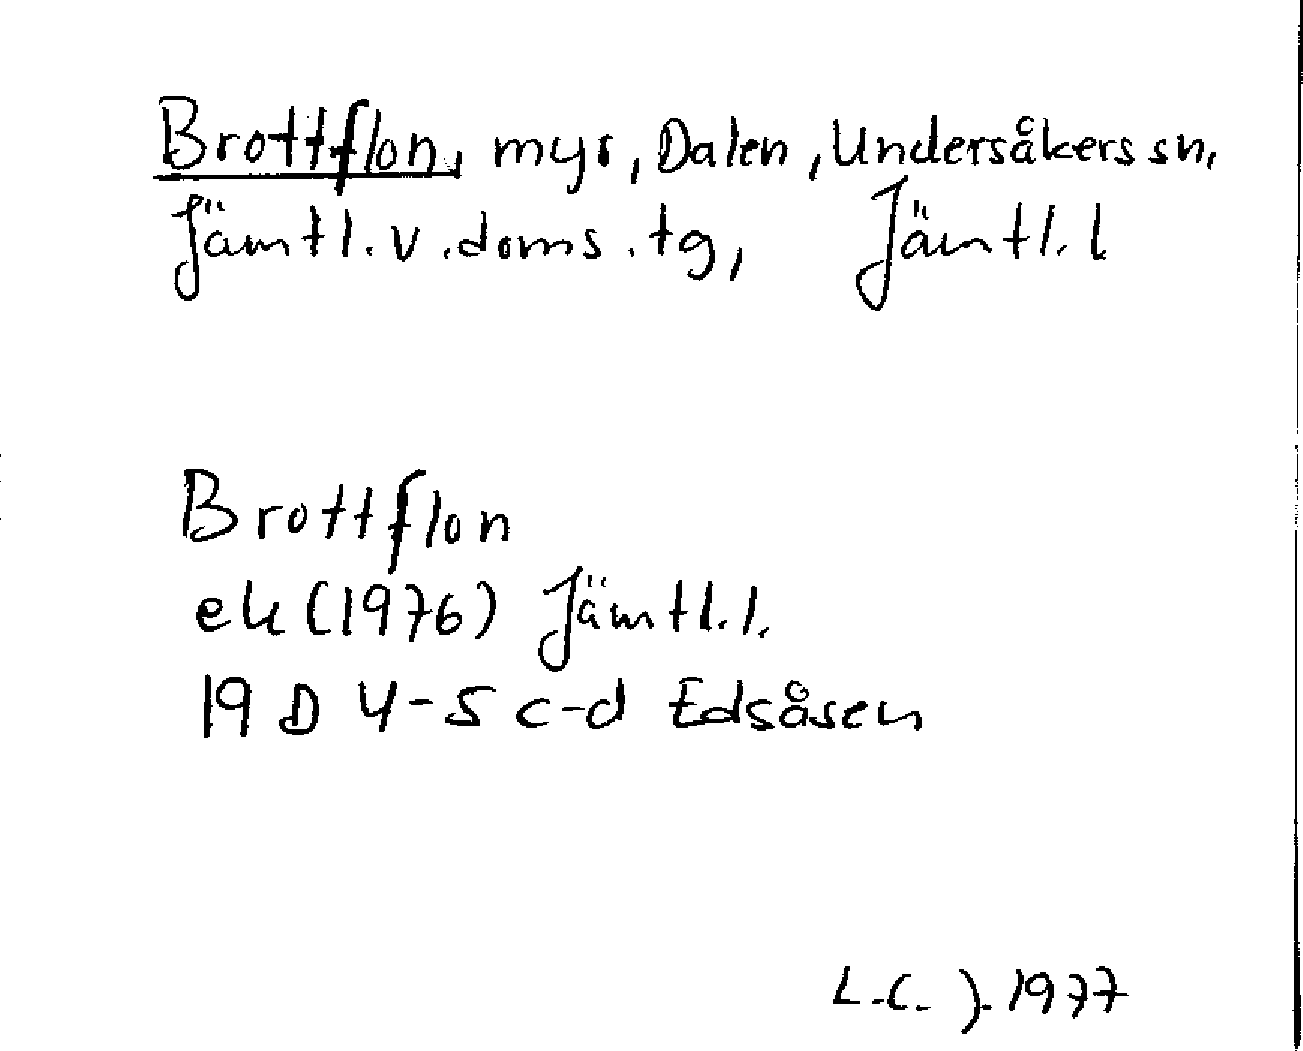 Brottflon, myr, Dalen, Undersåkers sn,
Jämtl. v. doms. tg, Jämtl. l
Brottflon
ek (1976) Jämtl. l.
19 D 4-5 c-d Edsåsen
L.C. J. 1977